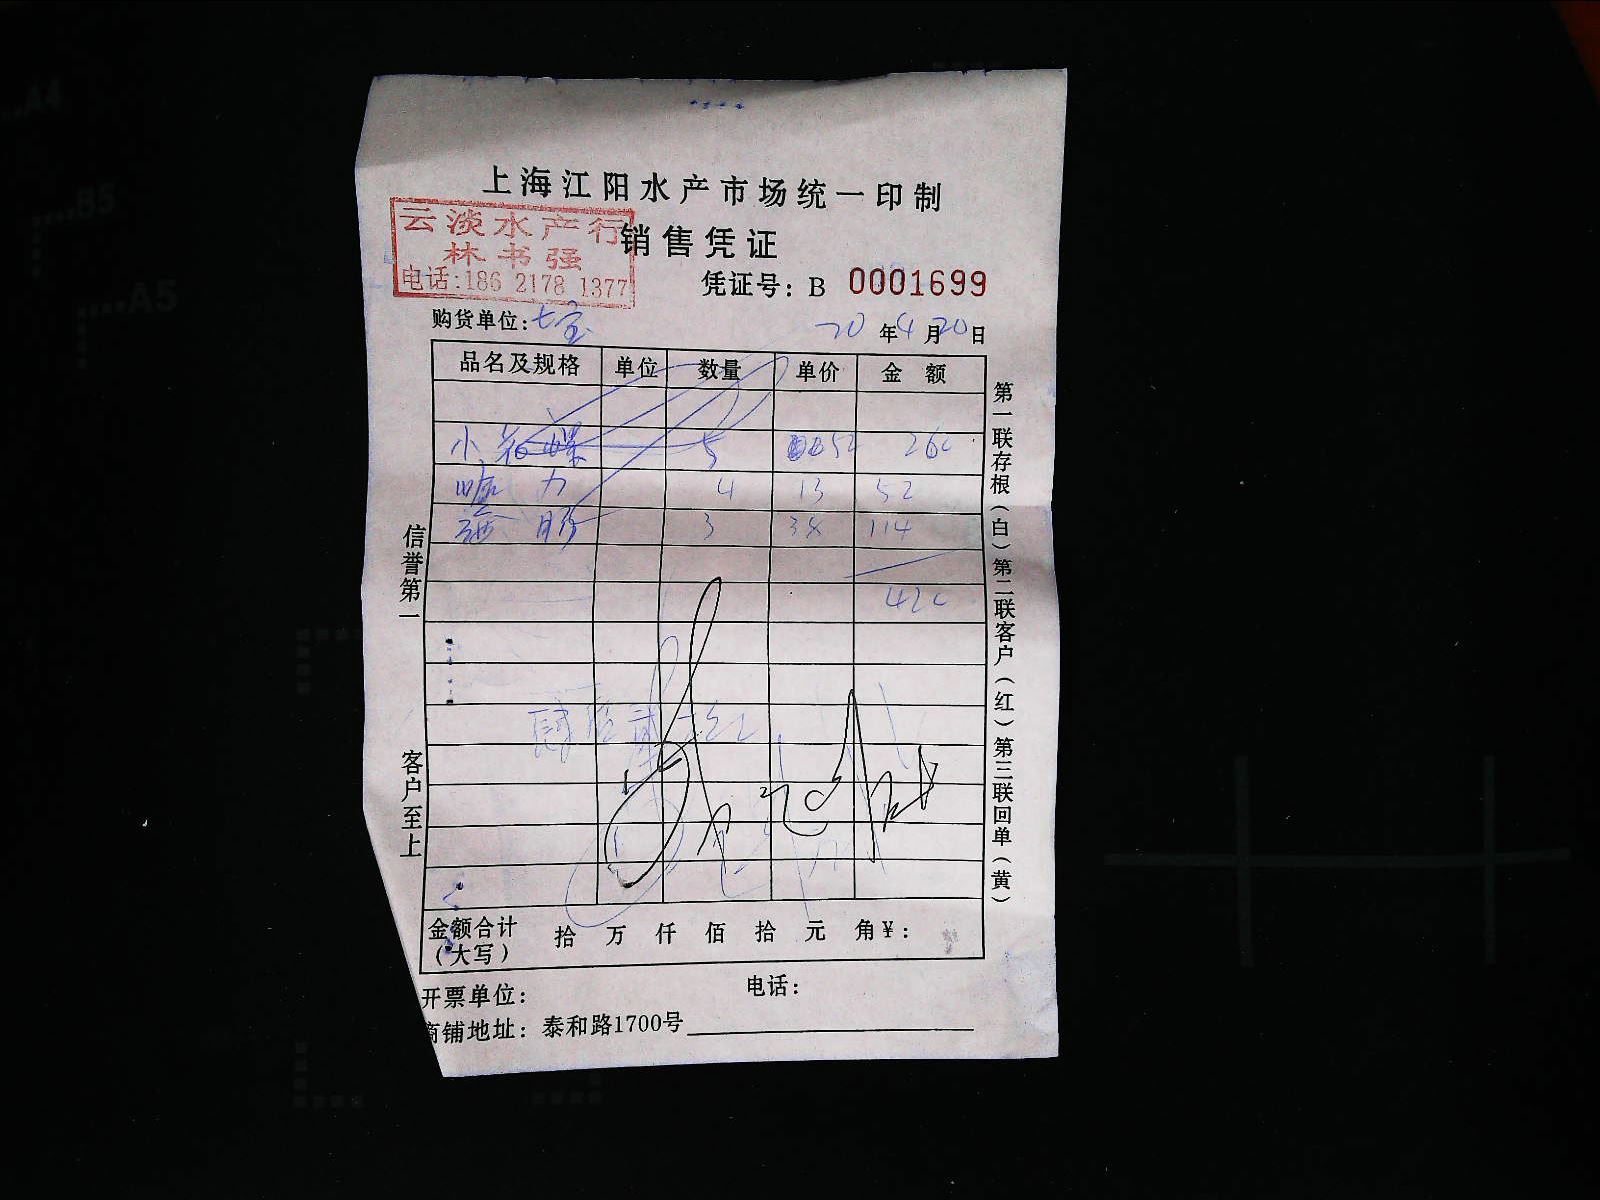 上海江阳水产市场统一印制
云淡水产行
林书强
电话:186 2178 1377
销售凭证
凭证号: B 0001699
购货单位: 七宝
20 年 4 月 20 日
品名及规格 单位 数量 单价 金额
小 花螺 5 52 260
蛏 力 4 13 52
3 38 114
426
肆佰贰 六元
金额合计(大写) 拾 万 仟 佰 拾 元 角 ¥:
开票单位: 电话:
商铺地址: 泰和路1700号
信誉第一
客户至上
第一联存根(白)第二联客户(红)第三联回单(黄)
A4
B5
A5